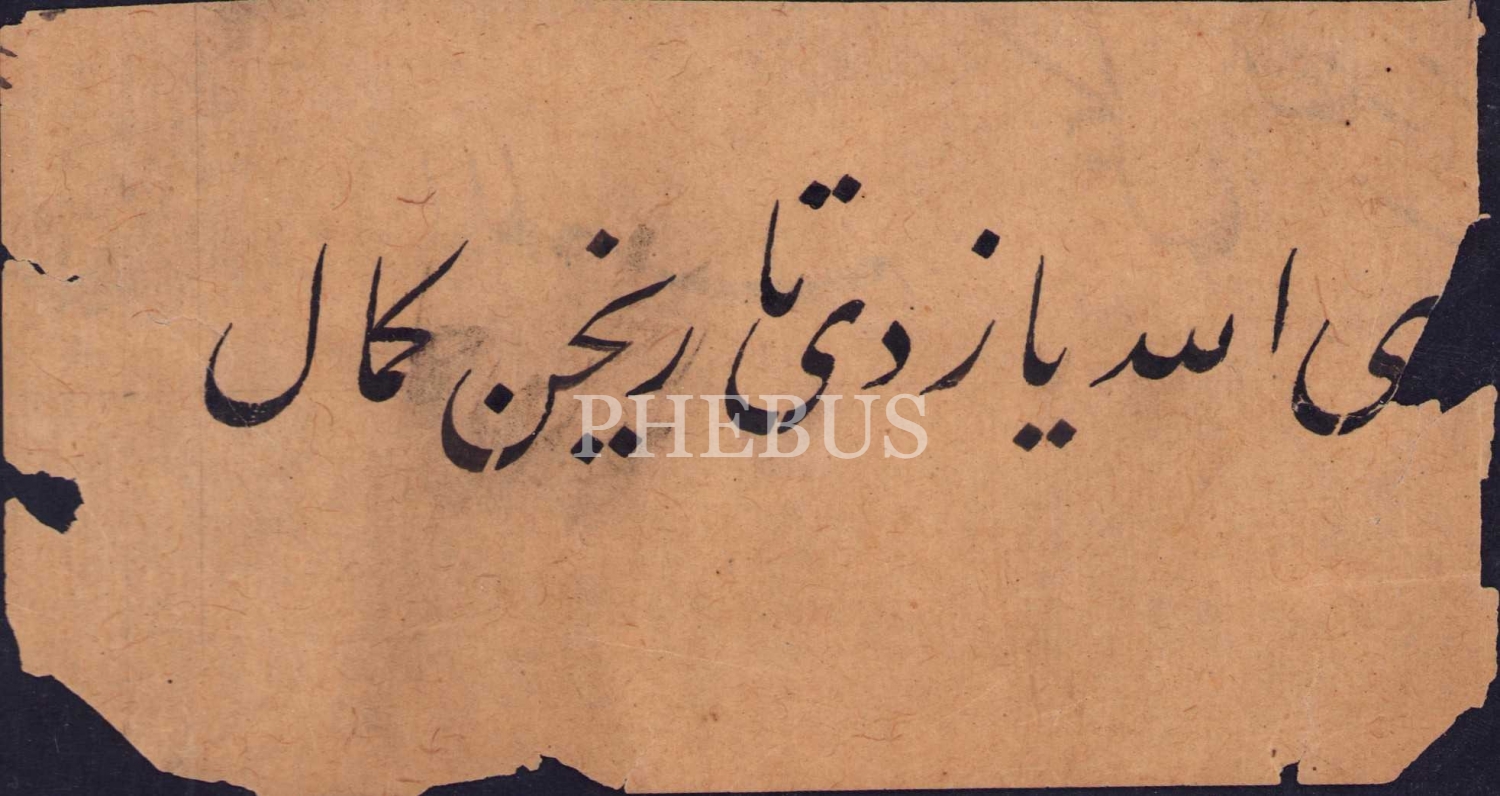 ی الله یازدی تاریخن کمال
PHEBUS